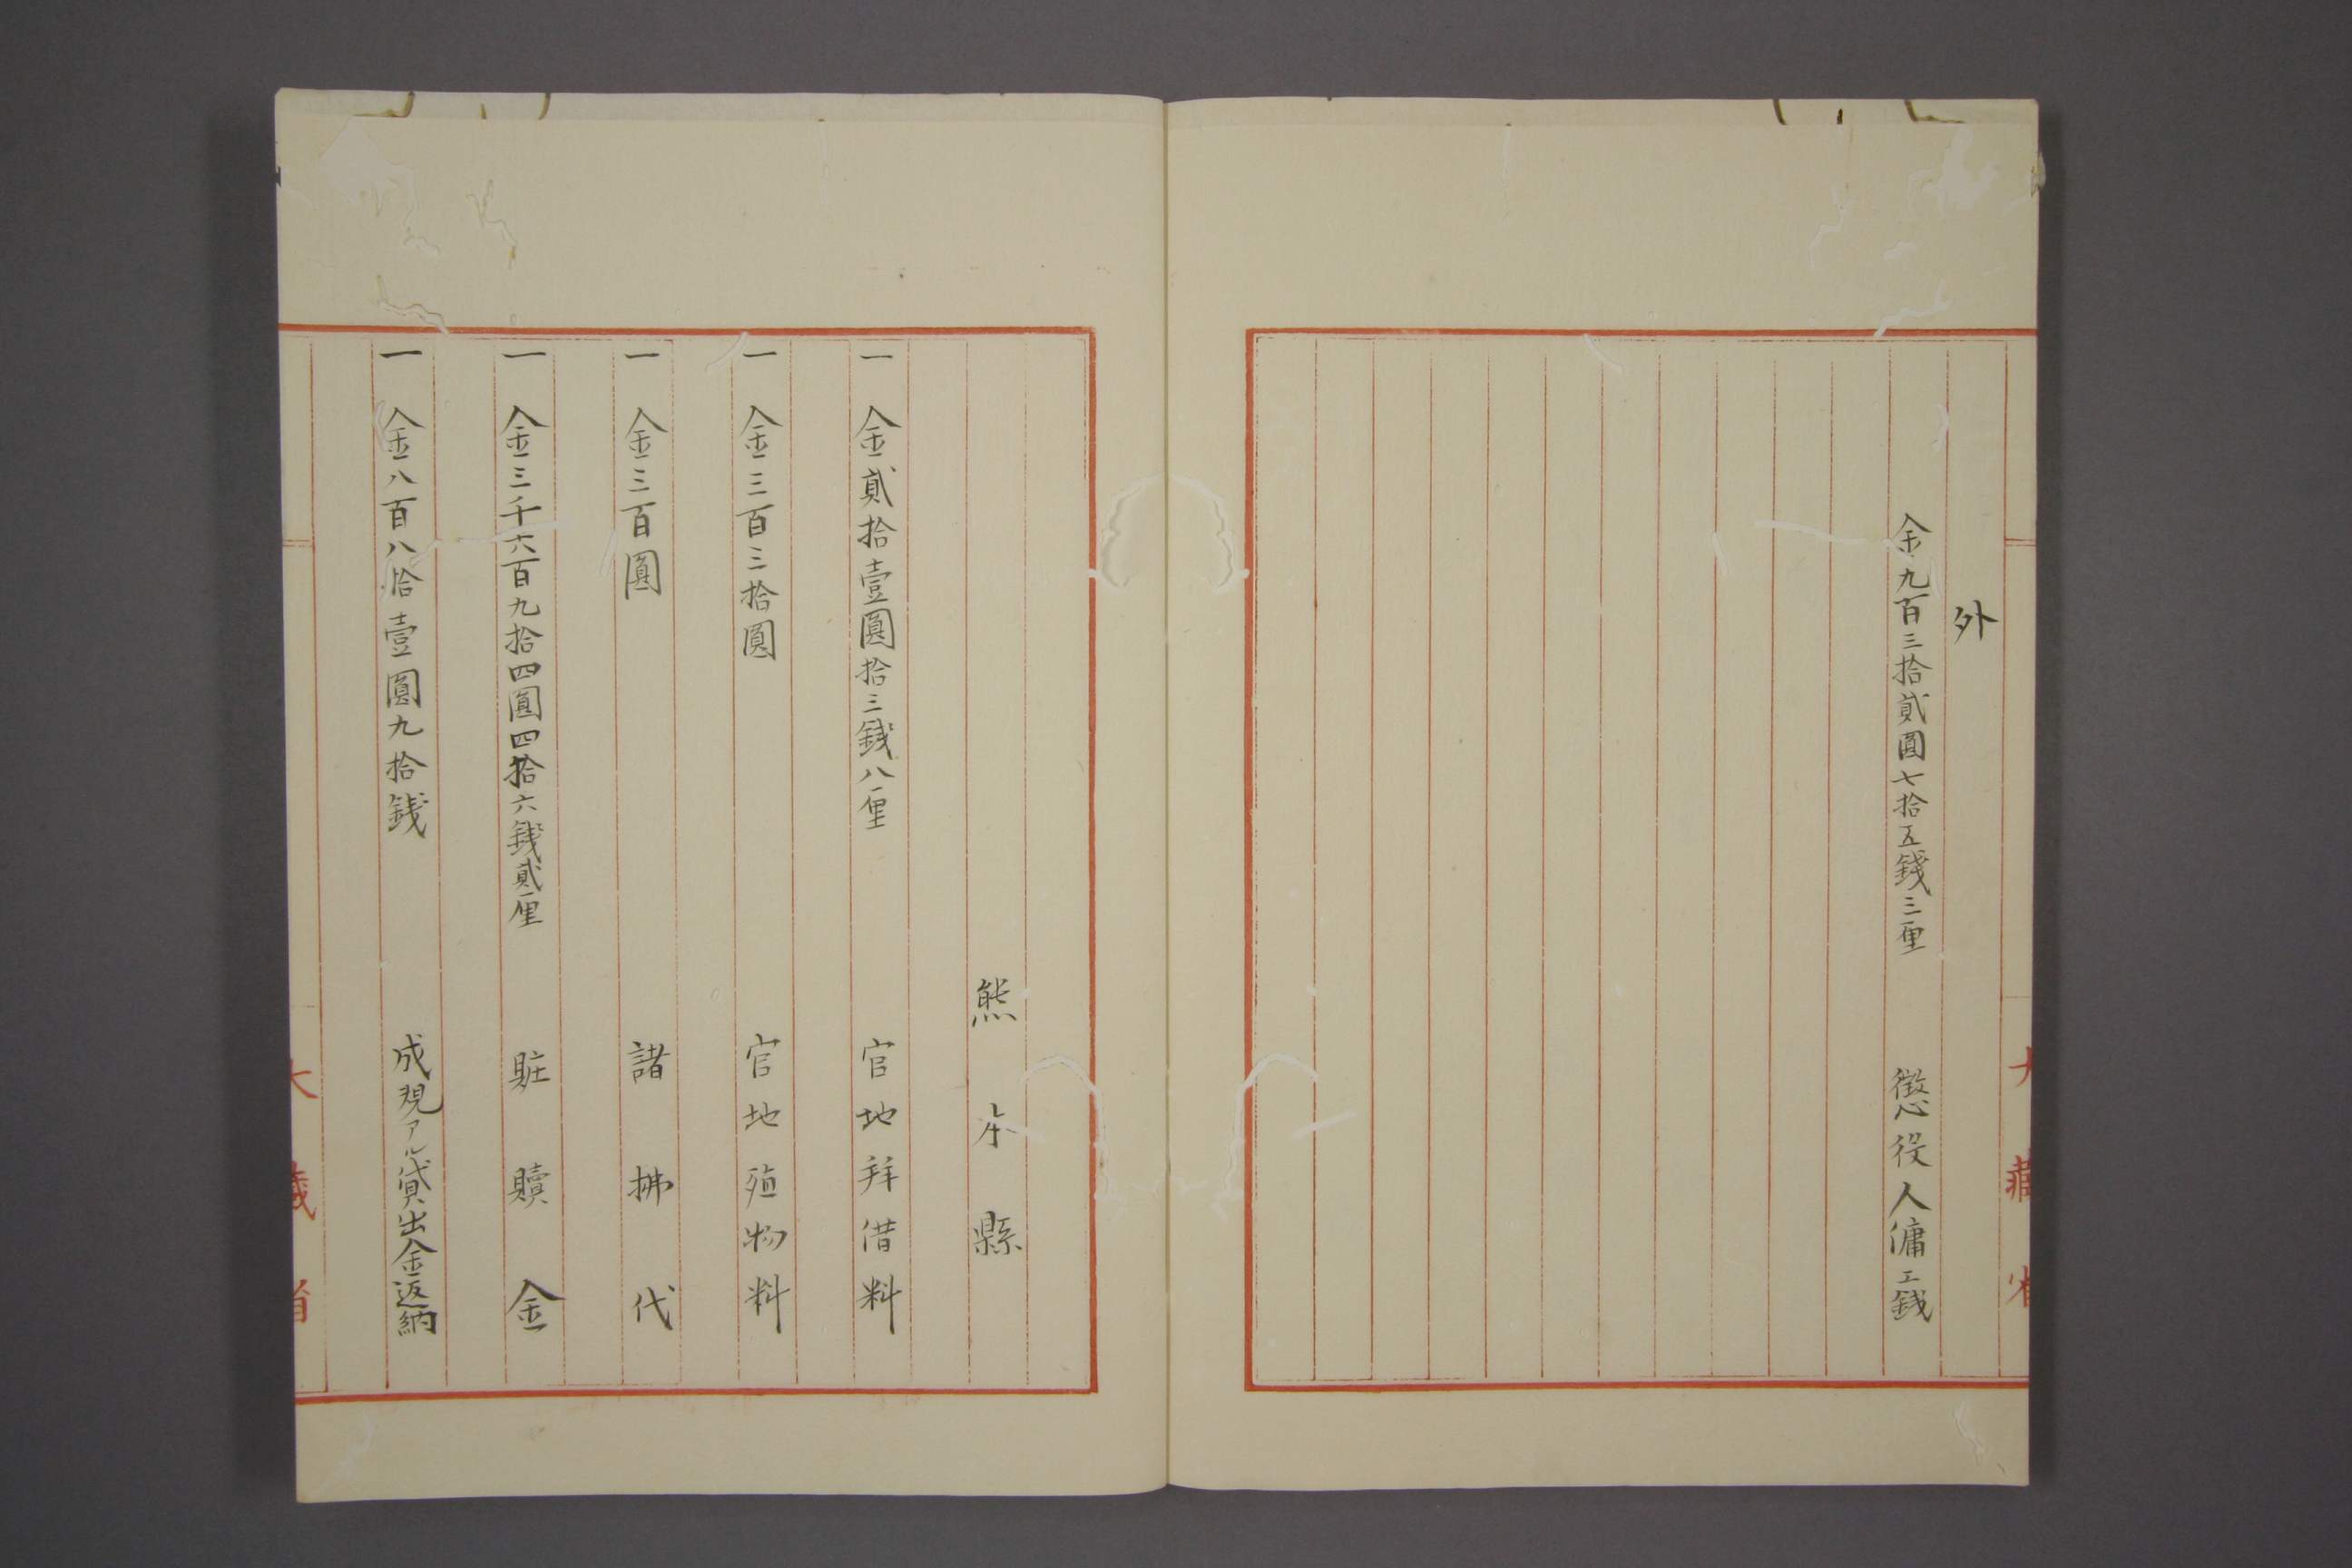 外
金九百三拾貮圓七拾五錢三厘 懲役人傭工錢
熊本縣
一 金貮拾壹圓拾三錢八厘 官地拜借料
一 金三百三拾圓 官地殖物料
一 金三百圓 諸拂代
一 金三千六百九拾四圓四拾六錢貮厘 贓贖金
一 金八百八拾壹圓九拾錢 成規アル貸出金返納
大藏省